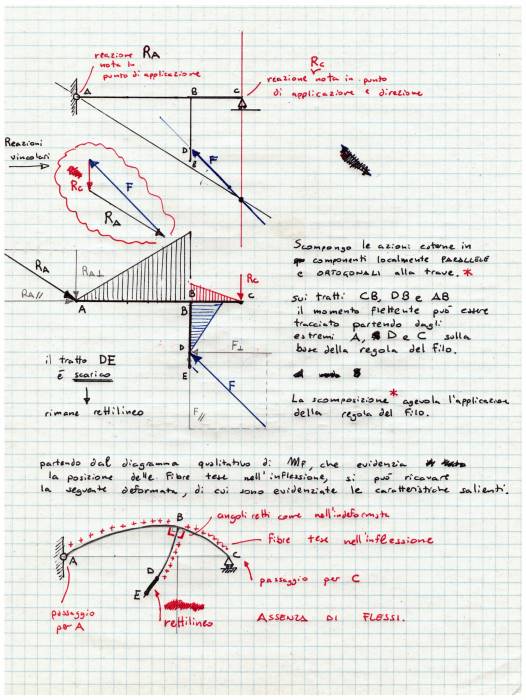 reazione RA
nota in
punto di applicazione
Rc
reazione nota in punto
di applicazione e direzione
A
B
C
D
E
F
Reazioni
vincolari
Rc
F
RA
RA
RA⊥
RA//
A
B
B
Rc
C
D
E
F⊥
F
F//
il tratto DE
è scarico
rimane rettilineo
Scompongo le azioni esterne in
componenti localmente PARALLELE
e ORTOGONALI alla trave. *
sui tratti CB, DB e AB
il momento flettente può essere
tracciato partendo dagli
estremi A, D e C sulla
base della regola del filo.
La scomposizione * agevola l'applicazione
della regola del filo.
partendo dal diagramma qualitativo di Mf, che evidenzia
la posizione delle fibre tese nell'inflessione, si può ricavare
la seguente deformata, di cui sono evidenziate le caratteristiche salienti.
B
angoli retti come nell'indeformata
fibre tese nell'inflessione
A
C
passaggio per C
D
E
passaggio
per A
rettilineo
ASSENZA DI FLESSI.